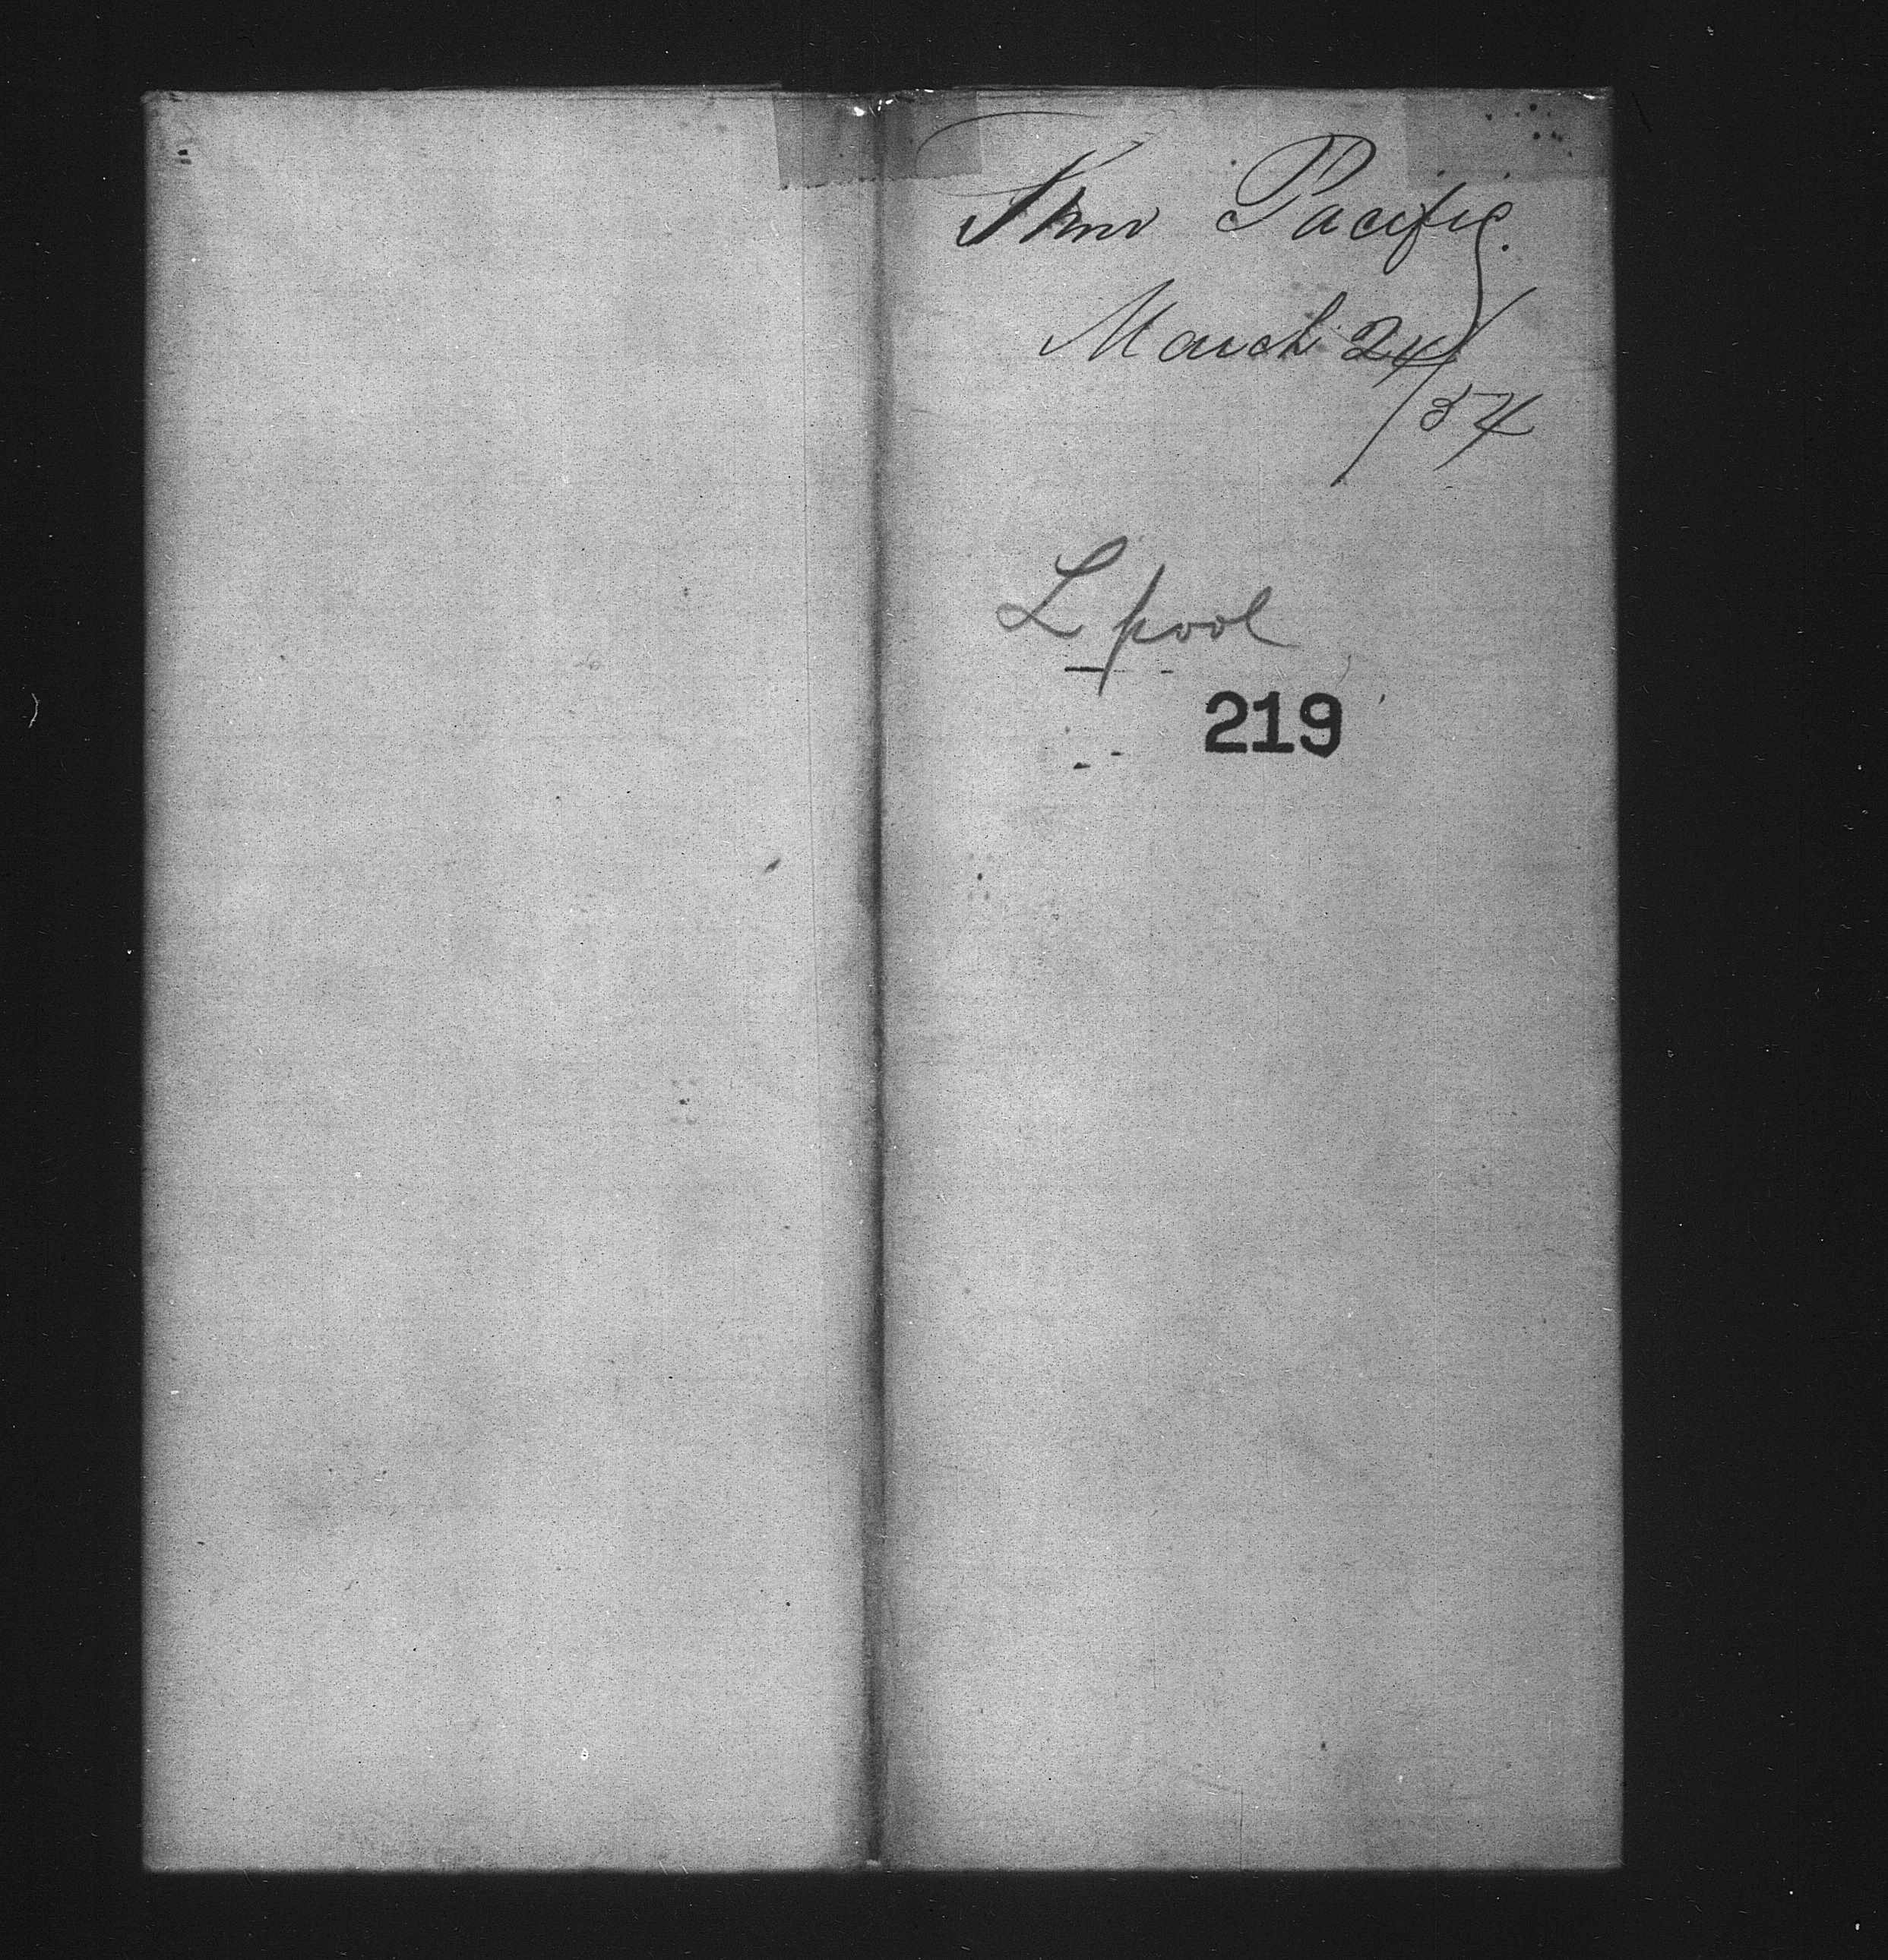 Stmr Pacific.
March 24/
54
L pool
219